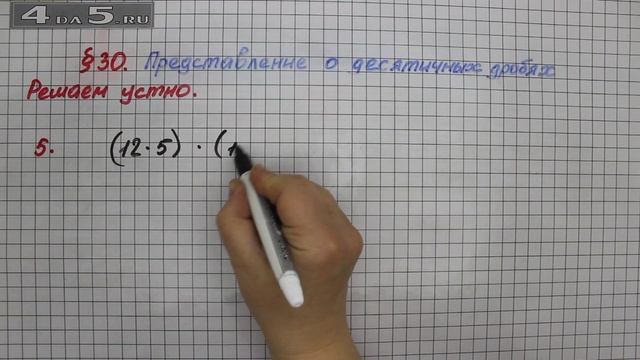 4DA5.RU
§30. Представление о десятичных дробях
Решаем устно.
5. (12·5) · (1